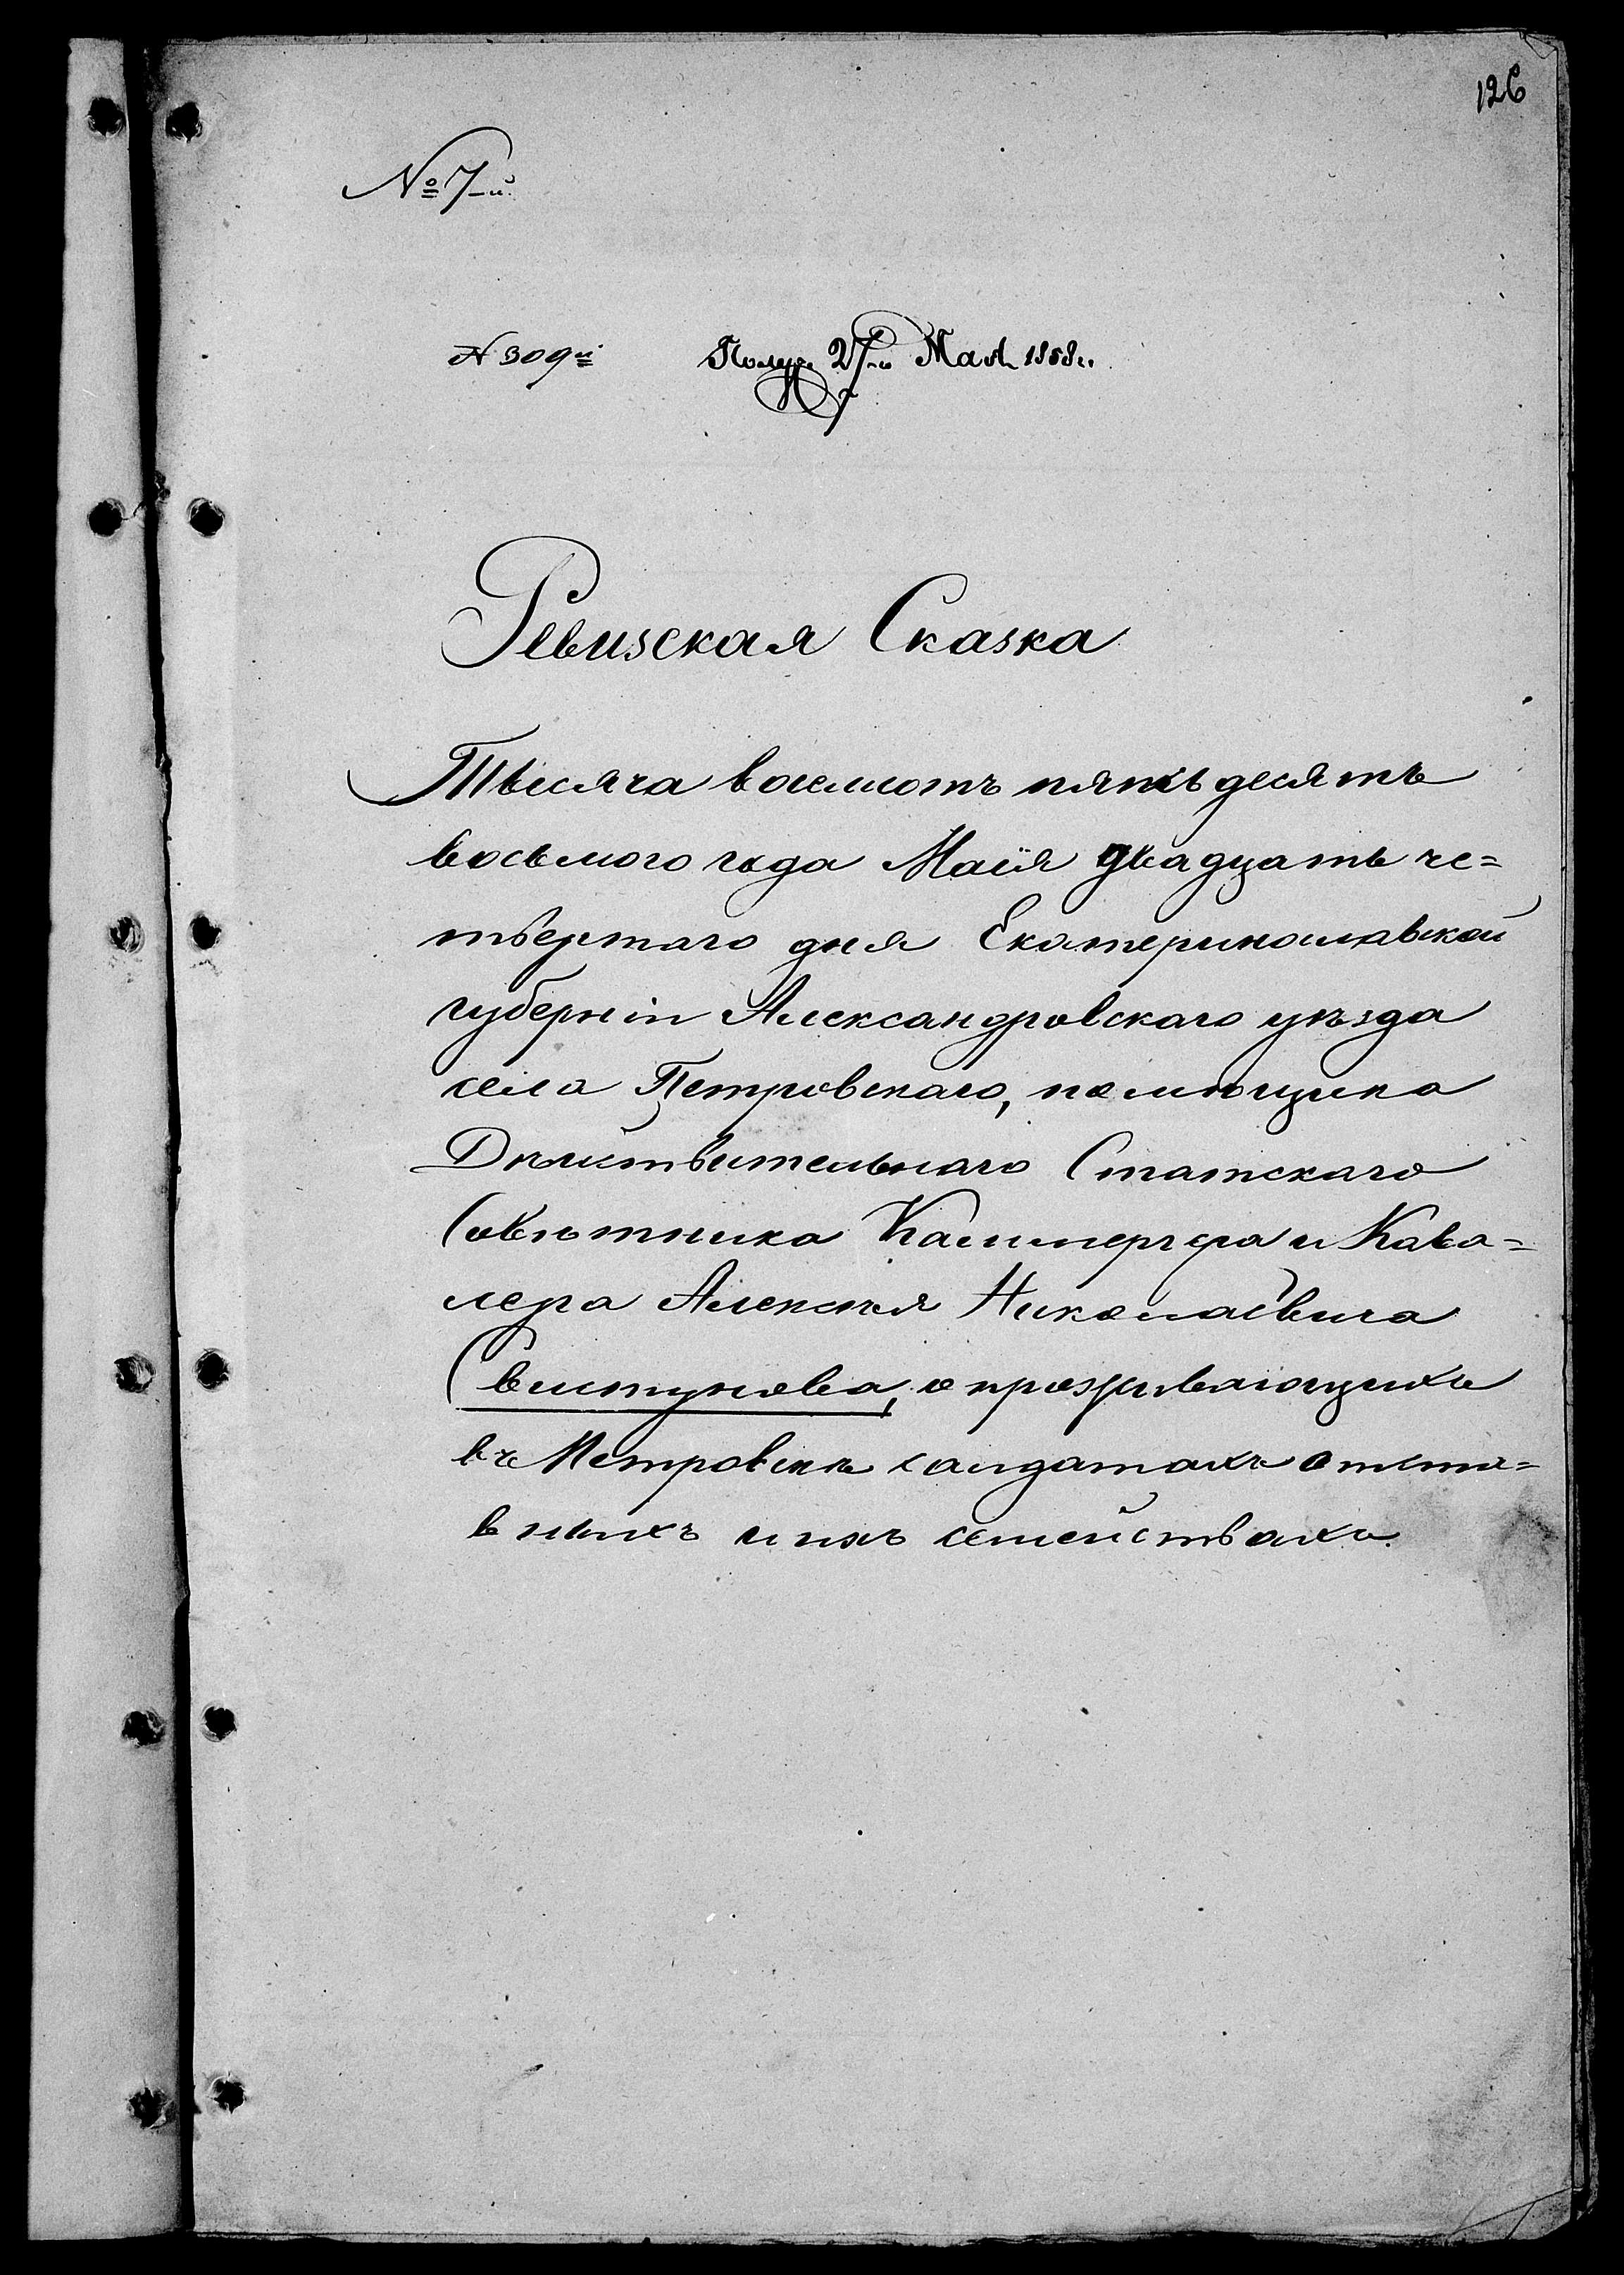 126
№ 7-й.
№ 309й Получ. 27-го Мая 1858 г.
Ревизская Сказка
Тысяча восемсотъ пятьдесятъ
восьмого года Маія двадцать че=
твертаго дня Екатеринославской
губерніи Александровскаго уѣзда
села Петровскаго, помѣщика
Дѣйствительнаго Статскаго
Совѣтника Каммергера и Кава=
лера Алексѣя Николаевича
Свистунова, о проживающихъ
въ Петровскѣ салдатахъ отста=
вныхъ и ихъ семействахъ.